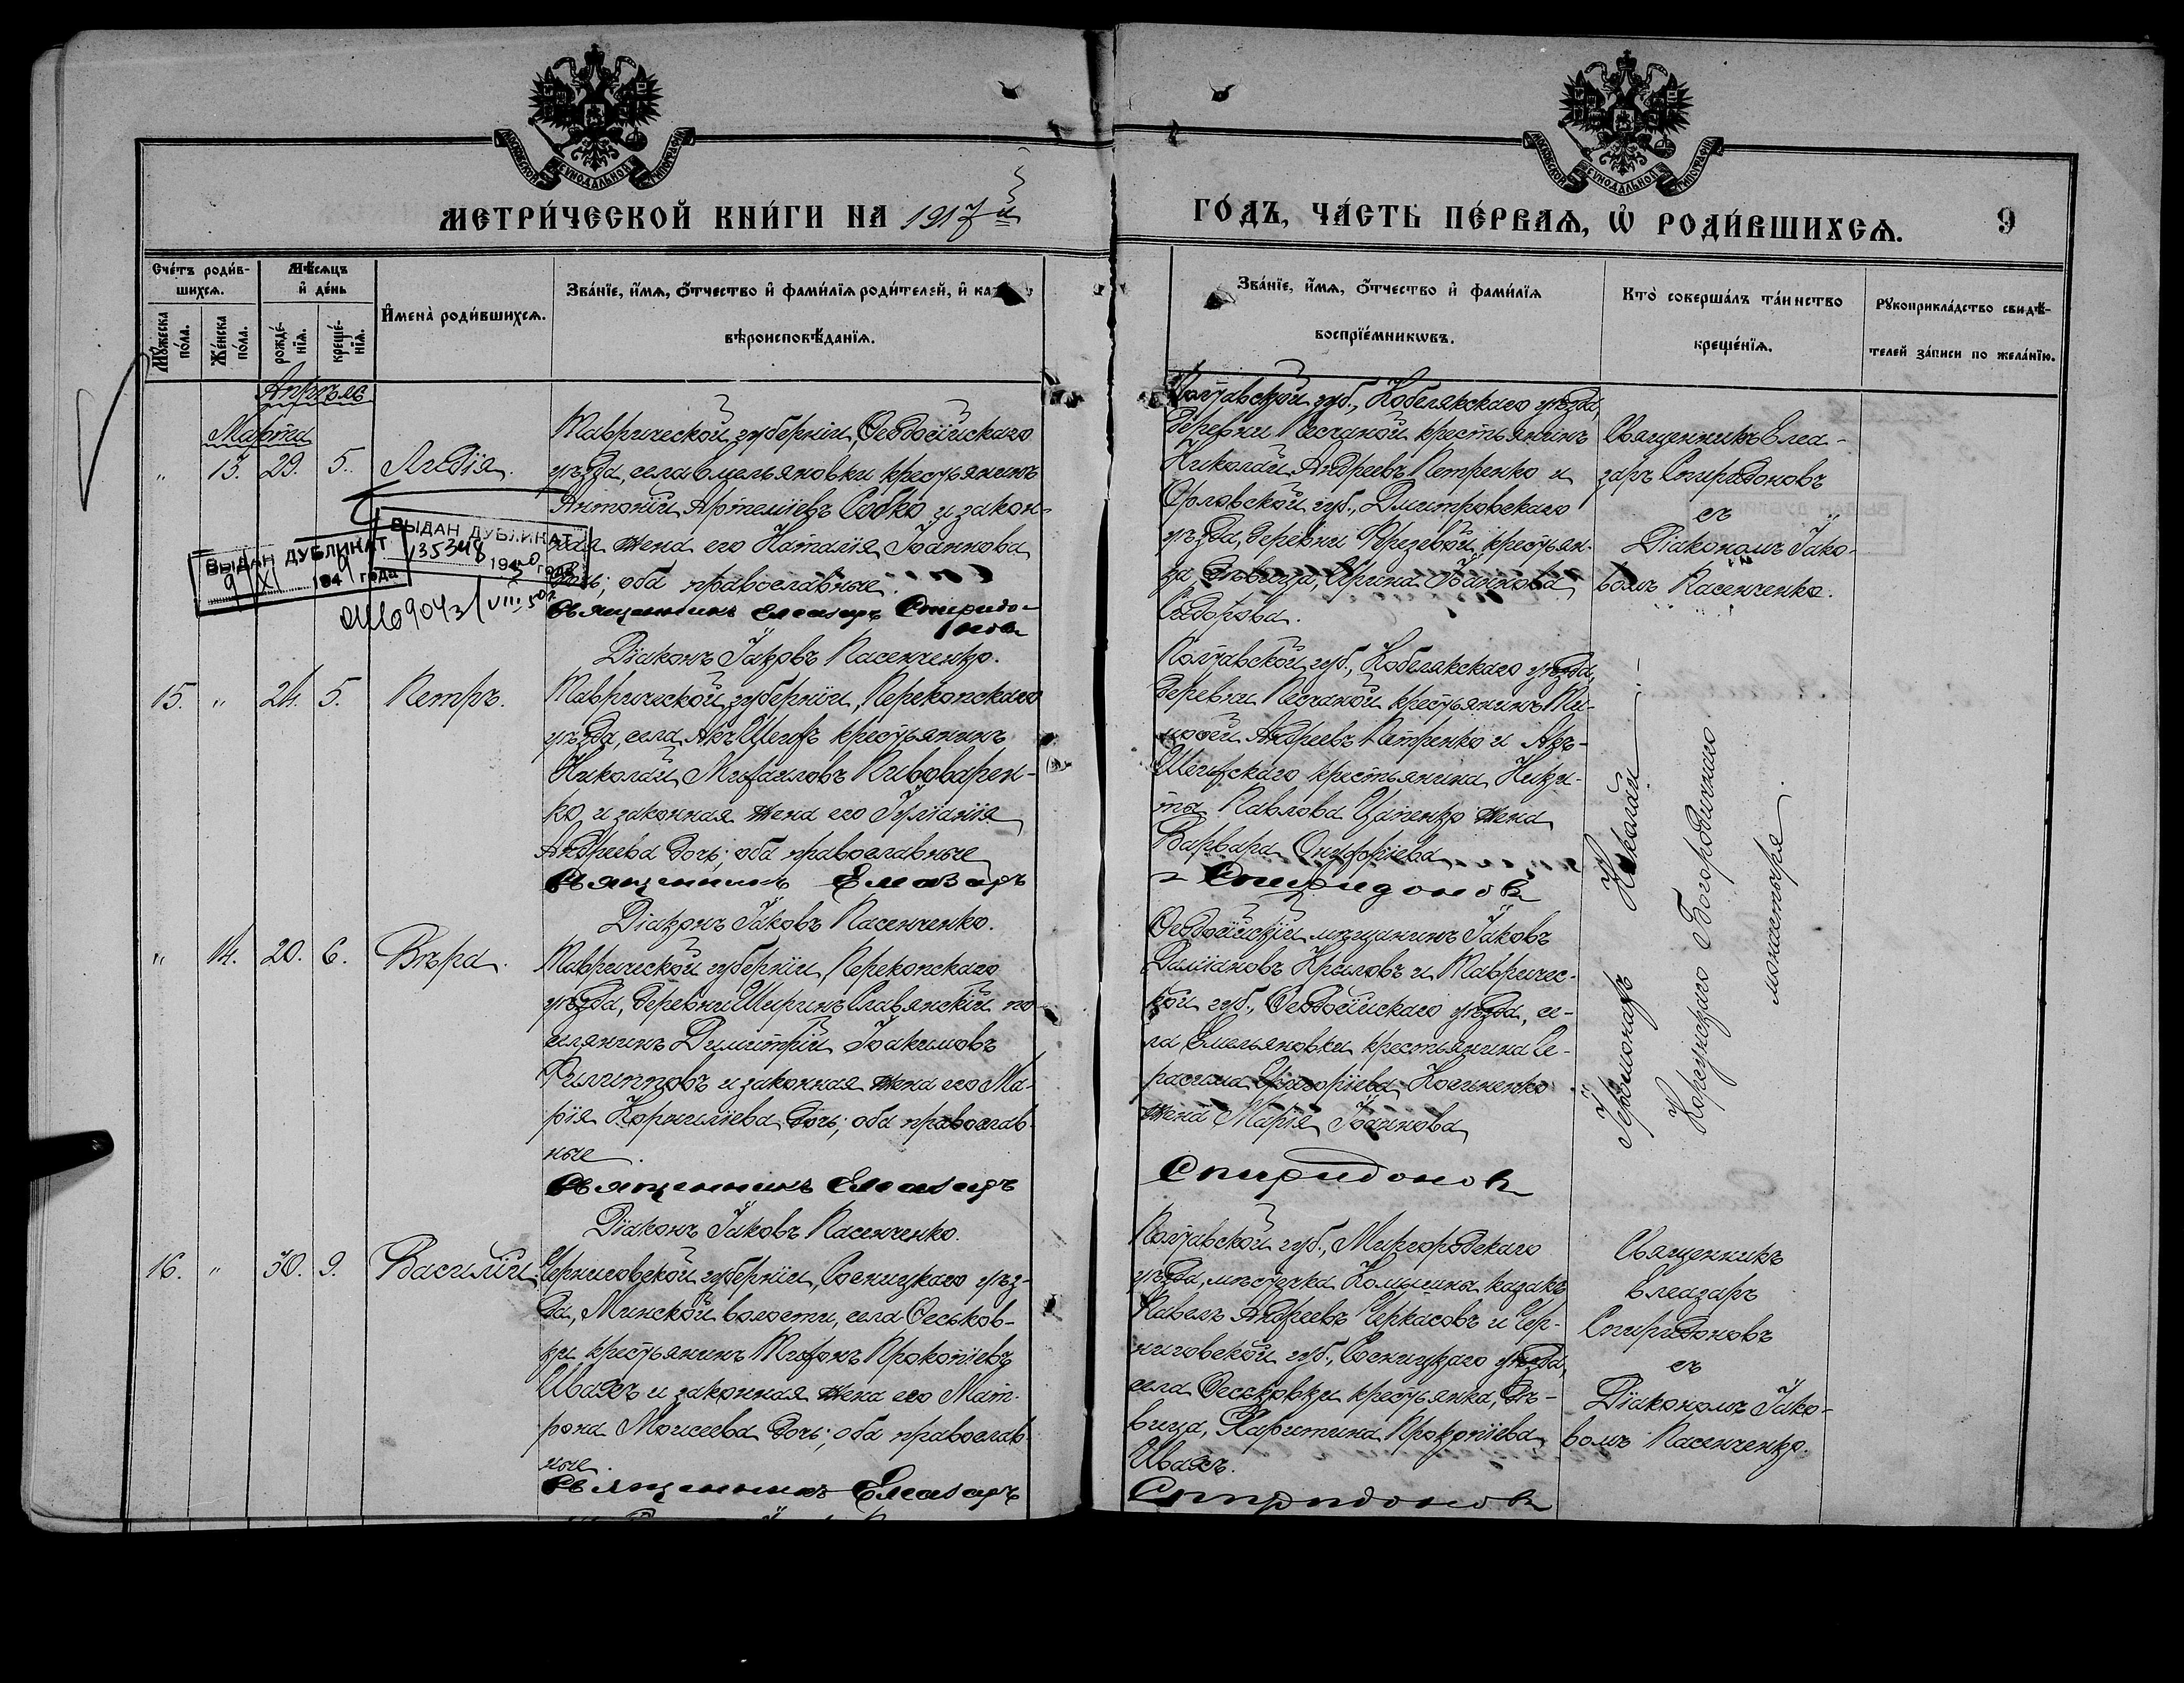 МЕТРИ́ЧЕСКОЙ КНИ́ГИ НА 1917й
ГО́ДЪ, ЧА́СТЬ ПЕ́РВАѦ, Ѿ РОДИ́ВШИХСѦ. 9
Сче́тъ роди́в-
шихсѧ.
Мꙋ́жеска по́ла.
Же́нска по́ла.
Мѣ́сѧцъ и҆ де́нь
рожде́-
нїѧ.
креще́-
нїѧ.
И҆мена̀ роди́вшихсѧ.
Зва́нїе, и҆́мѧ, ѻ҆́тчество и҆ фами́лїѧ роди́телей, и҆
вѣроисповѣ́данїѧ.
Зва́нїе, и҆́мѧ, ѻ҆́тчество и҆ фами́лїѧ
воспрїе́мникѡвъ.
Кто̀ соверша́лъ та́инство
креще́нїѧ.
Рꙋкоприкла́дство свидѣ́-
телей за́писи по жела́нїю.
Апрѣля
Марта
" 13. 29. 5. Лидія.
Таврической губерніи, Ѳеодосійскаго
уѣзда, села Емельяновки крестьянинъ
Антоній Артеміевъ Собко и закон-
ная жена его Наталія Іоаннова
дочь; оба православные.
Священникъ Елеазаръ Спиридо-
новъ
Діаконъ Іаковъ Пасенченко.
Полтавской губ., Кобелякскаго уѣзда,
деревни Песчаной крестьянинъ
Николай Андреевъ Петренко и
Орловской губ., Дмитровскаго
уѣзда, деревни крестьян-
ка, дѣвица, Ирина Іоаннова
Сидорова.
Священникъ Елеа-
заръ Спиридоновъ
съ
Діакономъ Іако-
вомъ Пасенченко.
ВЫДАН ДУБЛИКАТ
9 XI 1949 года
ВЫДАН ДУБЛИКАТ
135348 1950 года
VIII 50г
15. " 24. 5. Петръ.
Таврической губерніи, Перекопскаго
уѣзда, села Акъ-Шеихъ крестьянинъ
Николай Михаиловъ Пивоварен-
ко, и законная жена его Іуліанія
Андреева дочь; оба православные
Священникъ Елеазаръ
Діаконъ Іаковъ Пасенченко.
Полтавской губ., Кобелякскаго уѣзда,
деревни Песчаной крестьянинъ Ти-
моѳей Андреевъ Петренко и Акъ-
Шеихскаго крестьянина Ники-
ты Павлова Цапенко жена
Варвара Онуфріева
Спиридоновъ
Іеромонахъ Николай
Корсунскаго Богородичнаго
монастыря
" 14. 20. 6. Вѣра.
Таврической губерніи, Перекопскаго
уѣзда, деревни Ширинъ Славянскій по-
селянинъ Димитрій Іоакимовъ
Филипповъ и законная жена его Ма-
рія Корниліева дочь; оба православ-
ные.
Священникъ Елеазаръ
Діаконъ Іаковъ Пасенченко.
Ѳеодосійскій мѣщанинъ Іаковъ
Даміановъ Крыловъ и Тавричес-
кой губ., Ѳеодосійскаго уѣзда, се-
ла Емельяновки крестьянина Ге-
расима Григоріева
жена Марія Іоаннова
Спиридоновъ
16. " 30. 9. Василій
Черниговской губерніи, Сосницкаго уѣз-
да, Минской волости, села Ѳеськов-
ки крестьянинъ Тихонъ Прокопіевъ
Ивахъ и законная жена его Мат-
рона Моисеева дочь; оба православ-
ные.
Священникъ Елеазаръ
Полтавской губ., Миргородскаго
уѣзда, мѣстечка Комышны казакъ
Павелъ Андреевъ Черкасовъ и Чер-
ниговской губ., Сосницкаго уѣзда,
села Ѳеськовки крестьянка, дѣ-
вица, Харитина Прокопіева
Ивахъ.
Спиридоновъ
Священникъ
Елеазаръ
Спиридоновъ
съ
Діакономъ Іако-
вомъ Пасенченко.